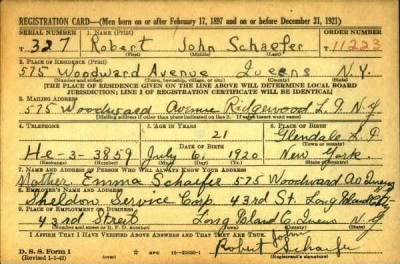 REGISTRATION CARD—(Men born on or after February 17, 1897 and on or before December 31, 1921)
SERIAL NUMBER 1. NAME (Print) ORDER NUMBER
T 327 Robert John Schaefer 11223
(First) (Middle) (Last)
2. PLACE OF RESIDENCE (Print)
575 Woodward Avenue Queens N.Y.
(Number and street) (Town, township, village, or city) (County) (State)
[THE PLACE OF RESIDENCE GIVEN ON THE LINE ABOVE WILL DETERMINE LOCAL BOARD
JURISDICTION; LINE 2 OF REGISTRATION CERTIFICATE WILL BE IDENTICAL]
3. MAILING ADDRESS
575 Woodward Avenue Ridgewood L.I. N.Y
[Mailing address if other than place indicated on line 2. If same insert word same]
4. TELEPHONE 5. AGE IN YEARS 6. PLACE OF BIRTH
21 Glendale L.I.
DATE OF BIRTH (Town or county)
He-3-3859 July 6 1920 New York.
(Exchange) (Number) (Mo.) (Day) (Yr.) (State or country)
7. NAME AND ADDRESS OF PERSON WHO WILL ALWAYS KNOW YOUR ADDRESS
Mother Emma Schaefer 575 Woodward Av Queens
8. EMPLOYER'S NAME AND ADDRESS
Sheldon Service Corp. 43rd St. Long Island City
9. PLACE OF EMPLOYMENT OR BUSINESS
43rd Street Long Island C. Queens N.Y
(Number and street or R. F. D. number) (Town) (County) (State)
I AFFIRM THAT I HAVE VERIFIED ABOVE ANSWERS AND THAT THEY ARE TRUE.
D. S. S. Form 1
(Revised 1-1-42) (over)
Robert John Schaefer
(Registrant's signature)